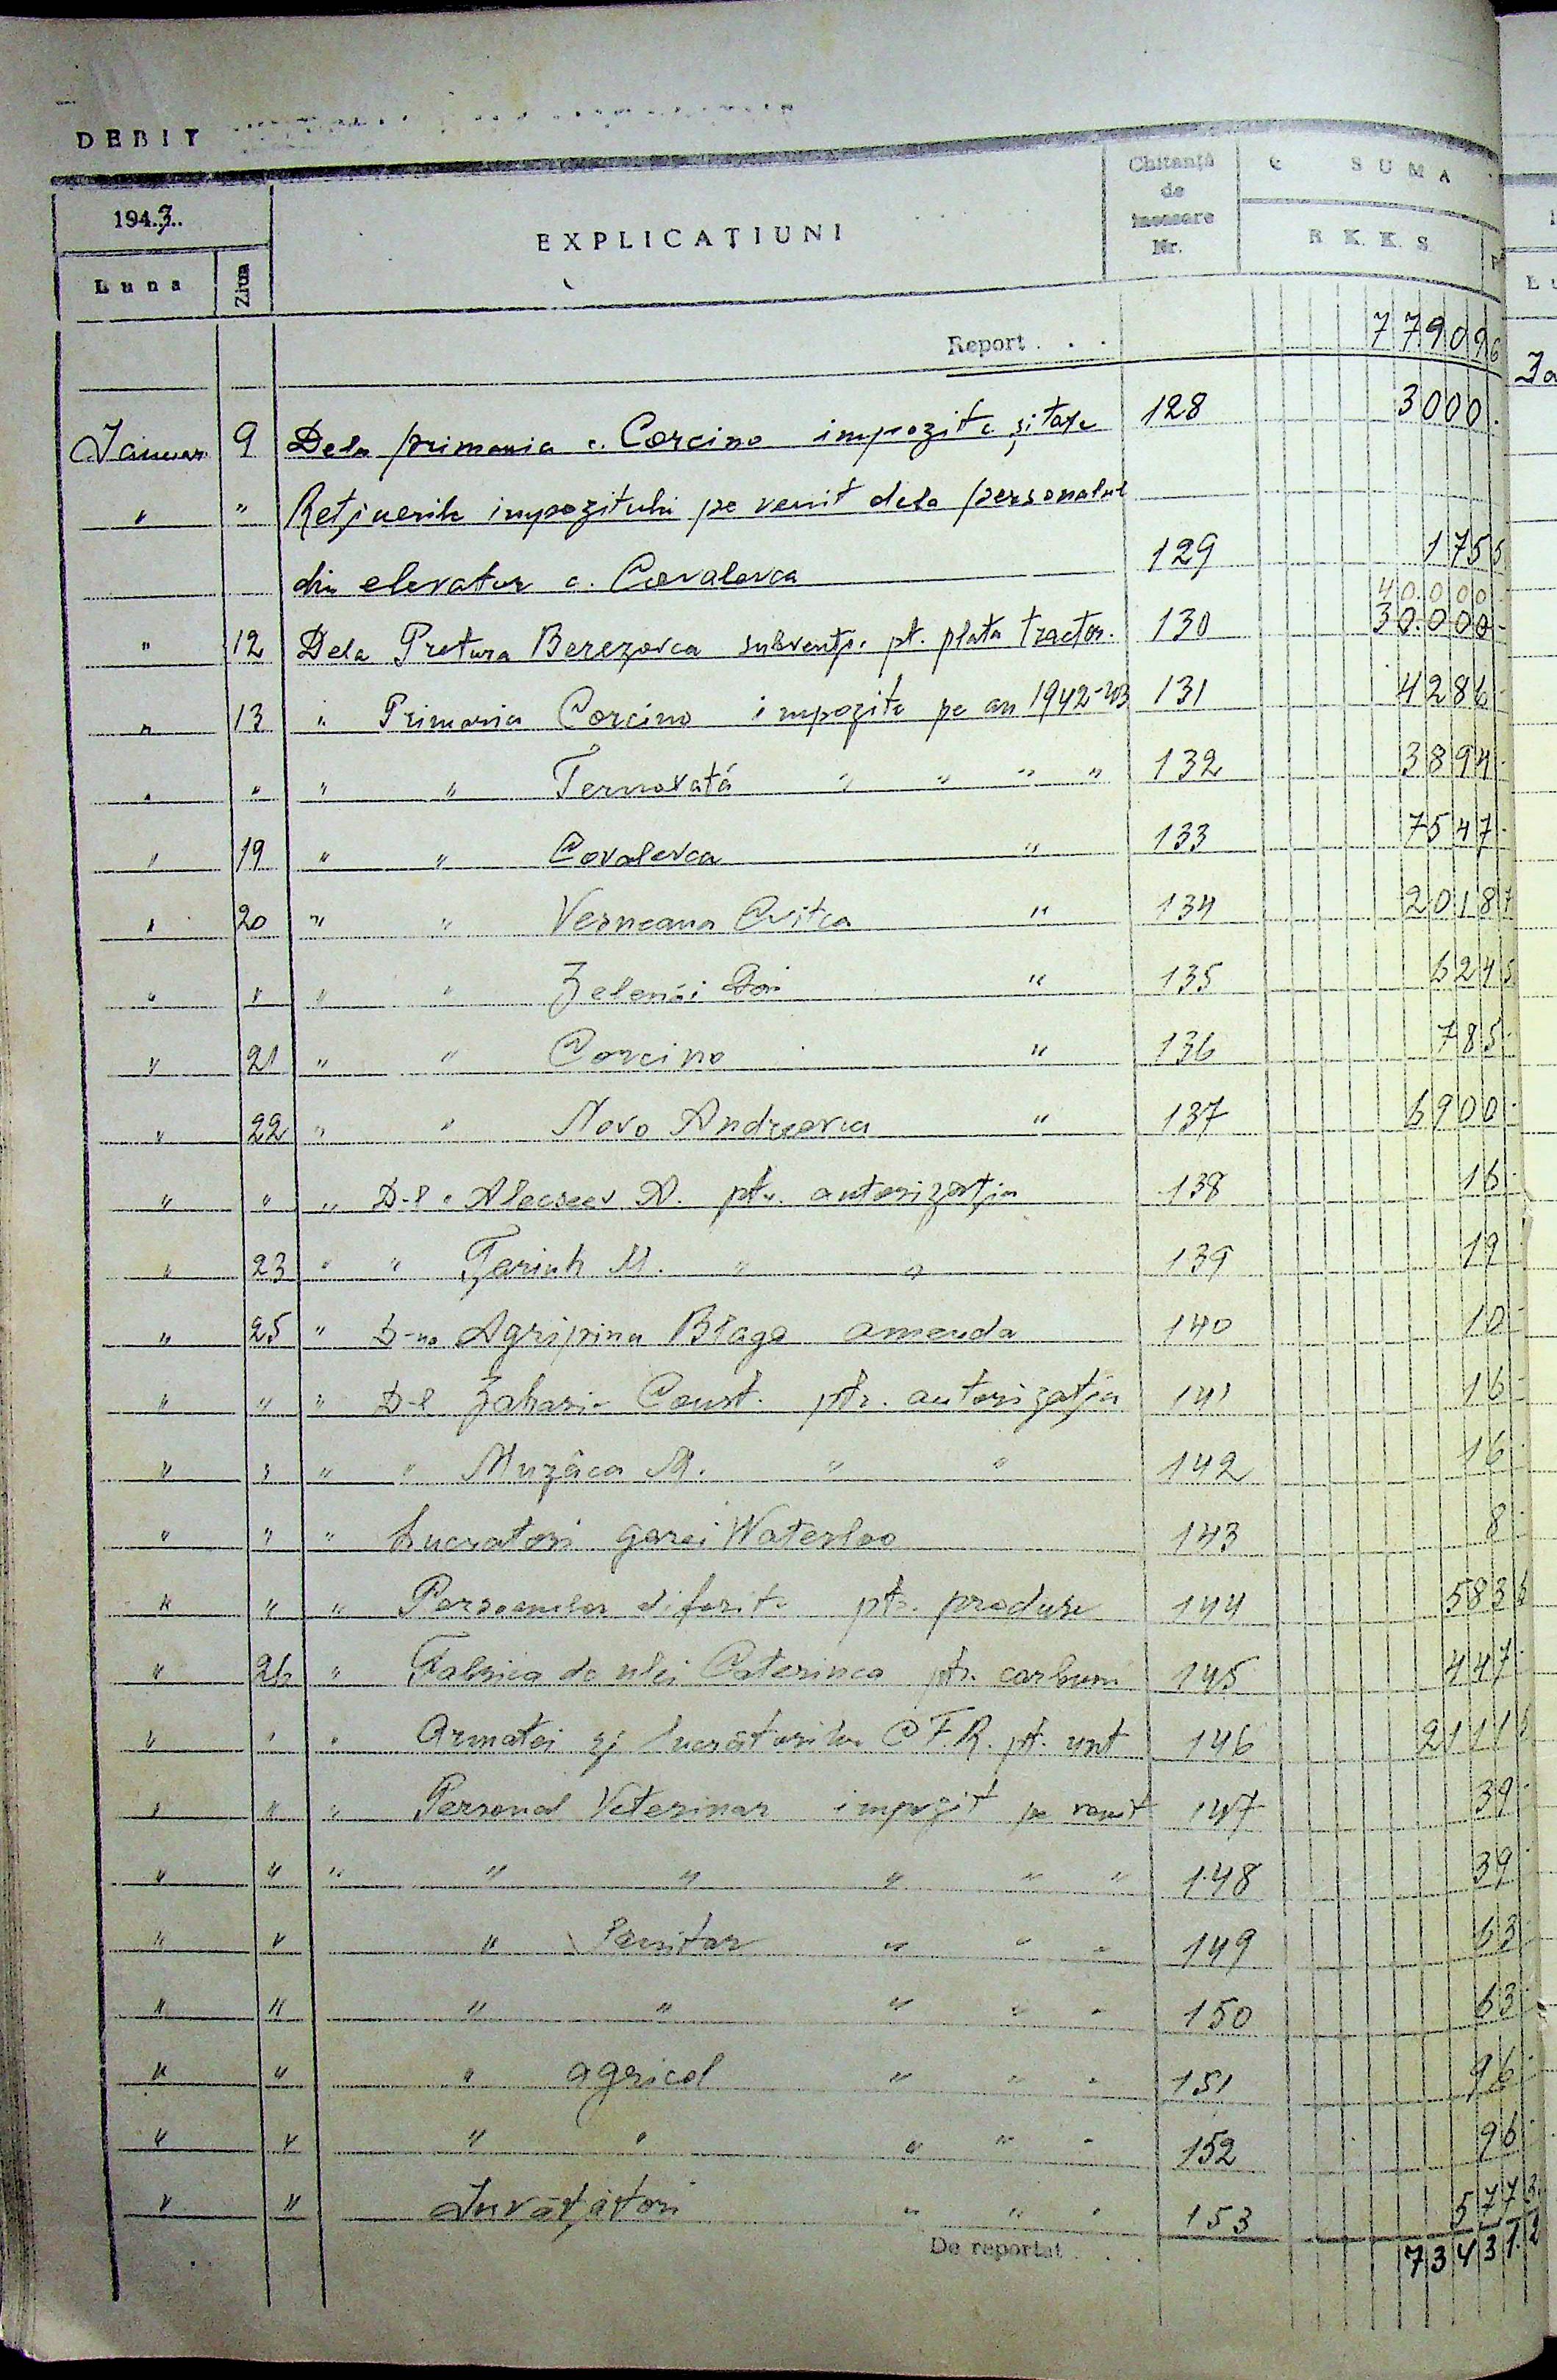 DEBIT
194.3..
Luna
Ziua
EXPLICAȚIUNI
Chitanță de incasare Nr.
SUMA
R. K. K. S.
Report . . . 779096
Januar 9 Dela primaria c. Corcino impozite și taxe 128 3000.
" " Retjinerile impozitului pe venit dela personalul
din elevator c. Covalevca 129 1755
40.000
" 12 Dela Pretura Berezovca subventj. pt. plata tractor. 130 30.000-
" 13 " Primaria Corcino impozite pe an 1942-43 131 4286-
" " " " Ternovată " " " " 132 3894-
" 19 " " Covalevca " 133 7547-
" 20 " " Verneana Cvitca " 134 20187
" " " " Zelenâi Doi " 135 6245
" 21 " " Corcino " 136 785-
" 22 " " Novo Andreevca " 137 6900-
" " " D-l Alecseev A. ptr. autorizatja 138 16-
" 23 " " M. " " 139 19
" 25 " D-na Agripina Blaga amenda 140 10-
" " " D-l Zaharie Const. ptr. autorizatja 141 16-
" " " " Muzâca M. " " 142 16-
" " " Lucratori garei Waterloo 143 8-
" " " Persoanelor diferite ptr. produse 144 5836
" 26 " Fabrica de ulei Caterinca ptr. carbuni 145 447-
" " " Armatei sj lucrătorilor C.F.R. pt. unt 146 21116
" " " Personal Veterinar impozit pe venit 147 39-
" " " " " " " " 148 39-
" " " Sanitar " " " 149 63-
" " " " " " " 150 63-
" " " agricol " " " 151 96-
" " " " " " " 152 96-
" " Învățători " " " 153 5773.
De reportat . . . 734312